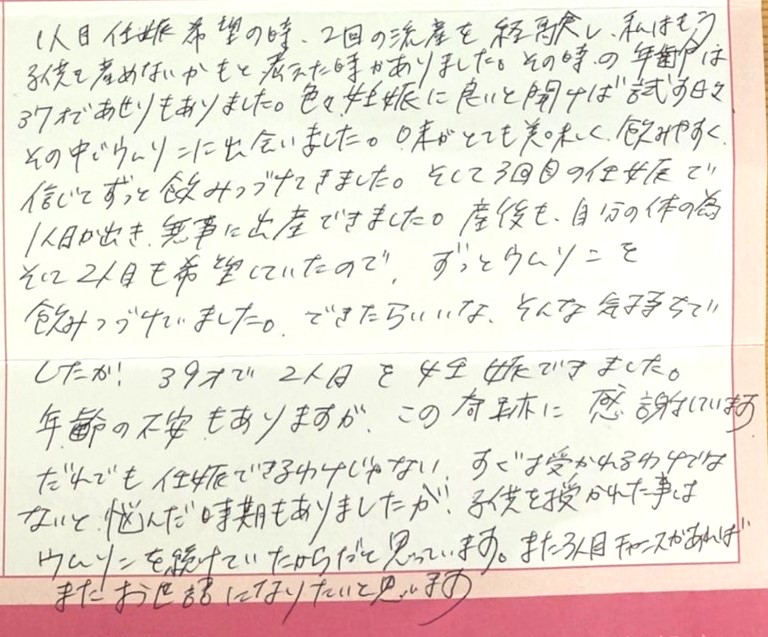 1人目妊娠希望の時、2回の流産を経験し、私はもう
子供を産めないかもと考えた時がありました。その時の年齢は
37才であせりもありました。色々妊娠に良いと聞けば試す日々
その中でウムリンに出会いました。味がとても美味しく、飲みやすく、
信じてずっと飲みつづけてきました。そして3回目の妊娠で
1人目が出き、無事に出産できました。産後も、自分の体の為
そして2人目も希望していたので、ずっとウムリンを
飲みつづけていました。できたらいいな、そんな気持ちで
したが! 39才で2人目を妊娠できました。
年齢の不安もありますが、この奇跡に感謝しています
だれでも妊娠できるわけじゃない、すぐは受かれるわけでは
ないと、悩んだ時期もありましたが! 子供を授かれた事は
ウムリンを続けていたからだと思っています。また3人目チャンスがあれば
またお世話になりたいと思います